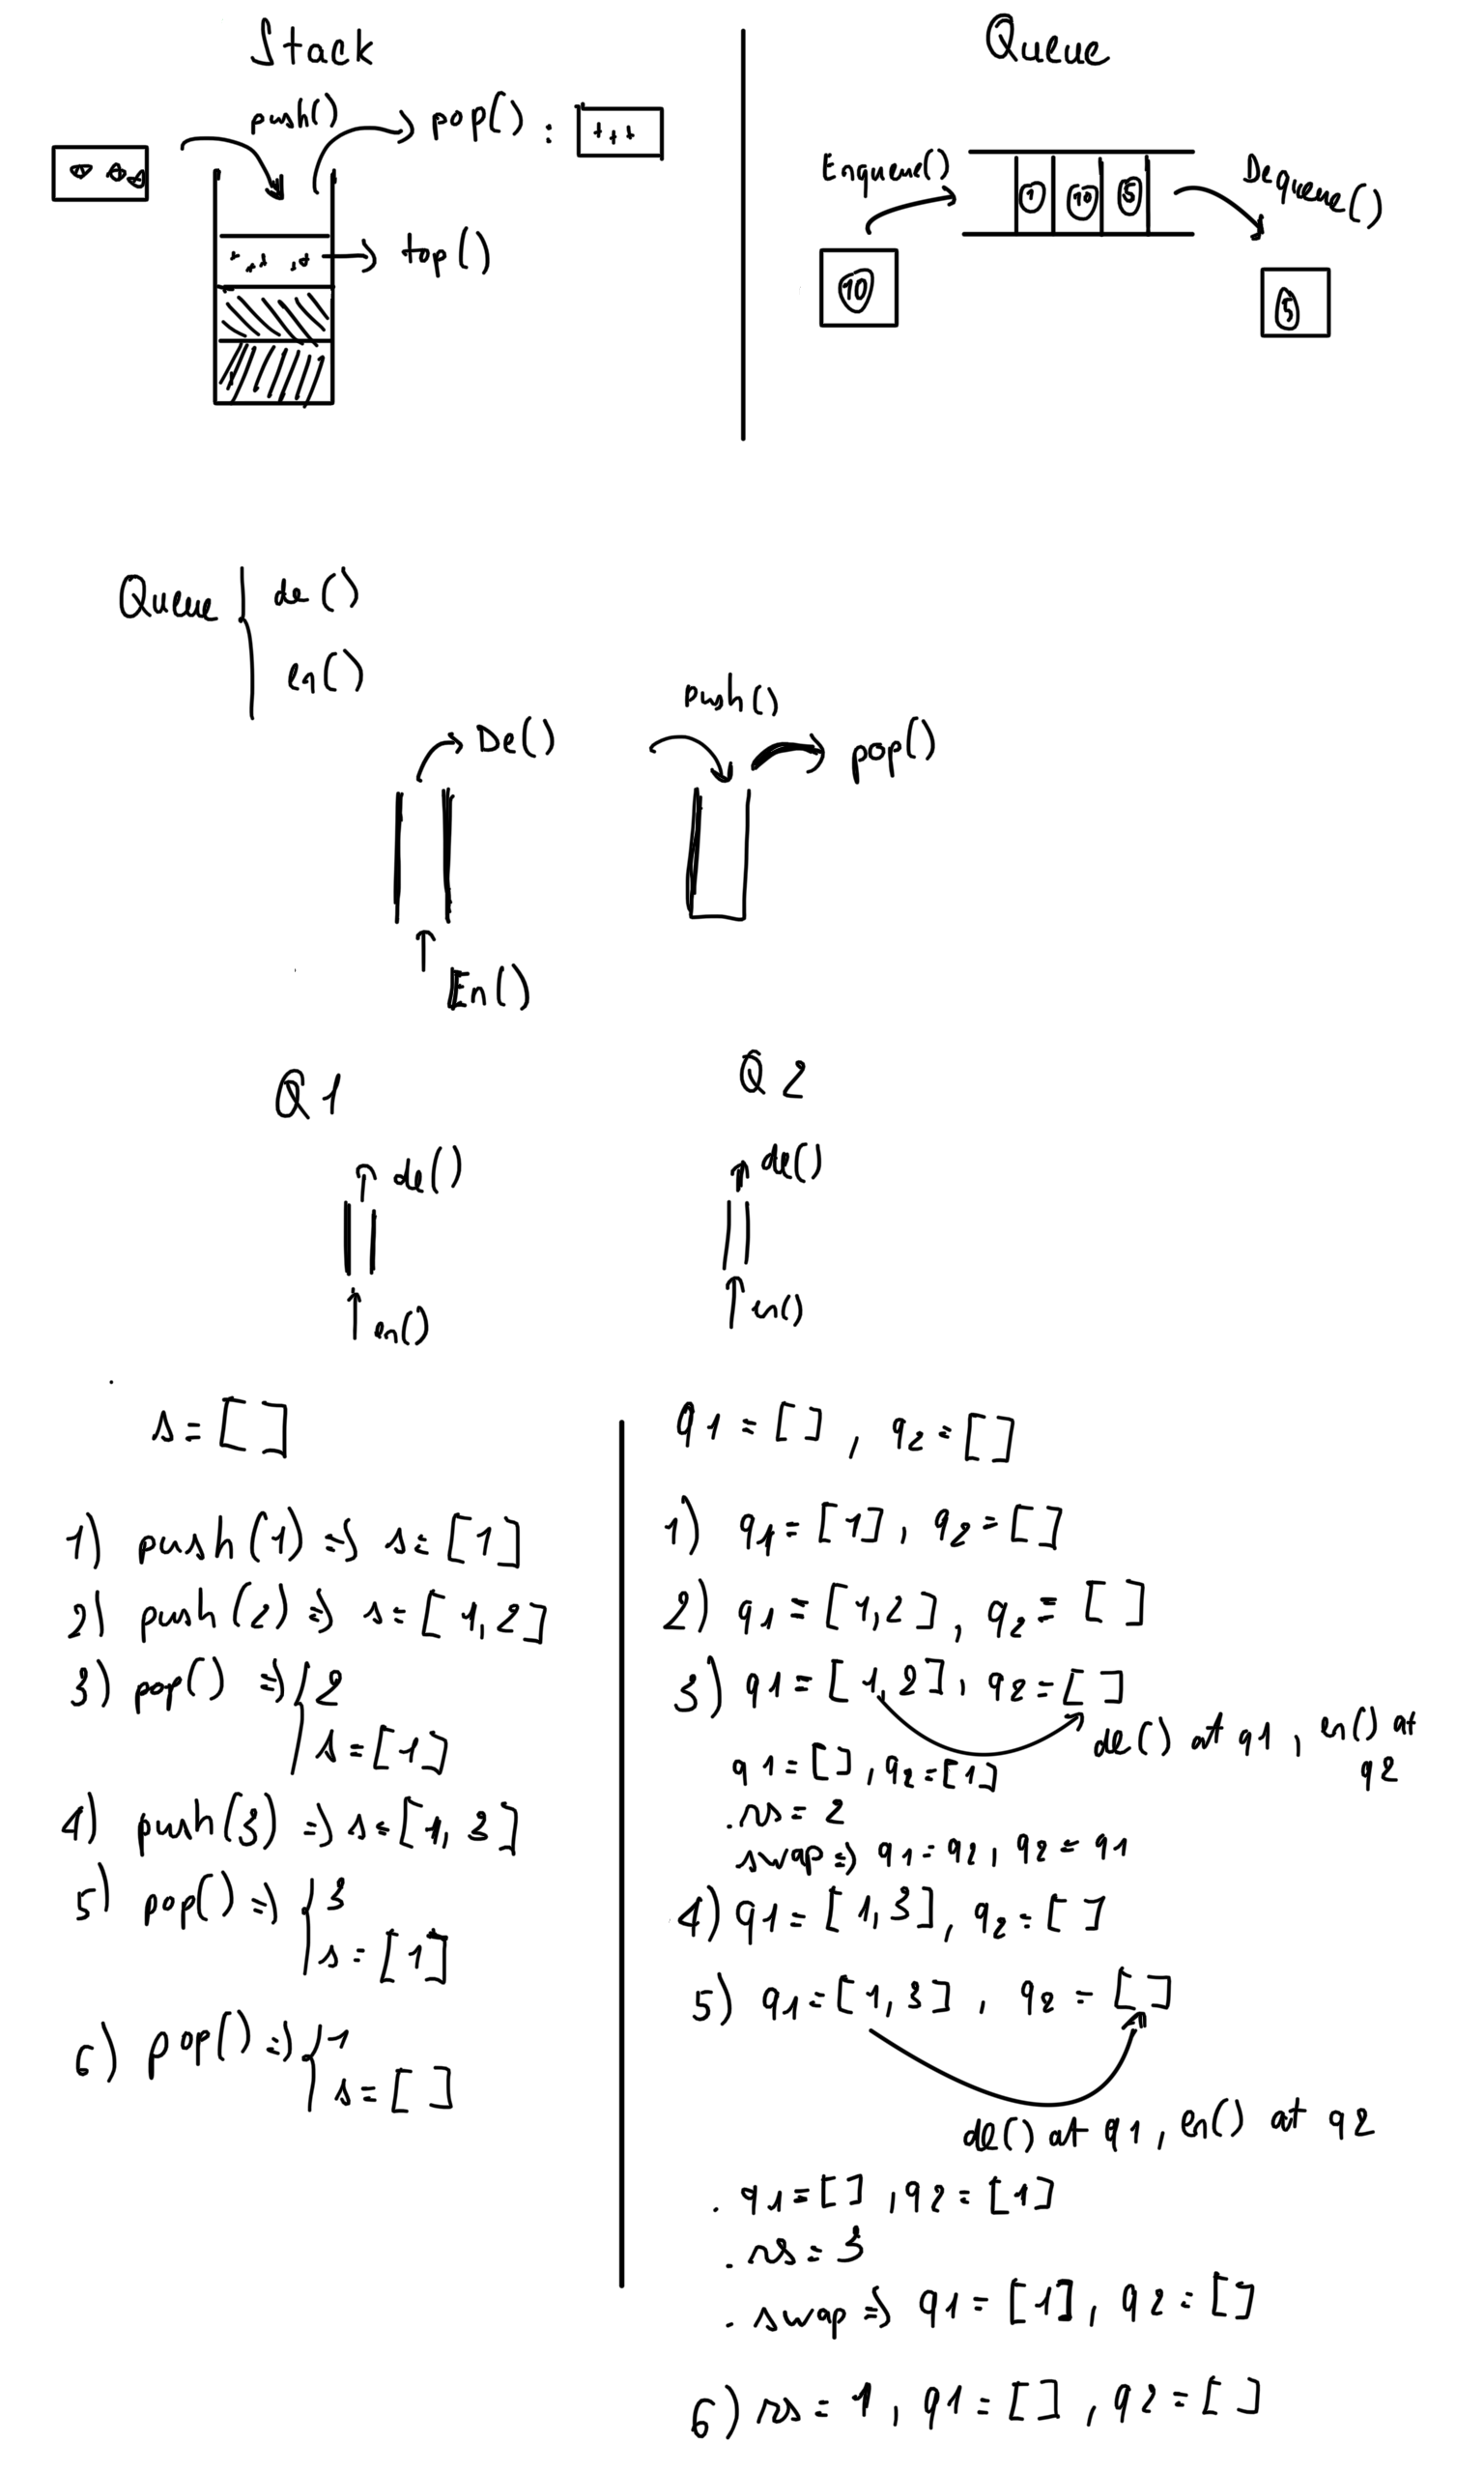 Stack
push()
pop() :
top()
Queue
Enqueue()
1 10 5
Dequeue()
10
5
Queue
de()
en()
De()
En()
push()
pop()
Q1
de()
en()
Q2
de()
en()
s = [ ]
1) push(1) => s = [1]
2) push(2) => s = [1,2]
3) pop() => 2
s = [1]
4) push(3) => s = [1, 3]
5) pop() => 3
s = [1]
6) pop() => 1
s = [ ]
q1 = [ ] , q2 = [ ]
1) q1 = [1], q2 = [ ]
2) q1 = [1,2], q2 = [ ]
3) q1 = [1,2], q2 = [ ]
de() at q1, en() at
q2
q1 = [ ], q2 = [1]
. rs = 2
swap => q1 = q2, q2 = q1
4) q1 = [1,3], q2 = [ ]
5) q1 = [1,3] , q2 = [ ]
de() at q1, en() at q2
. q1 = [ ], q2 = [1]
. rs = 3
. swap => q1 = [1], q2 = [ ]
6) rs = 1, q1 = [ ], q2 = [ ]